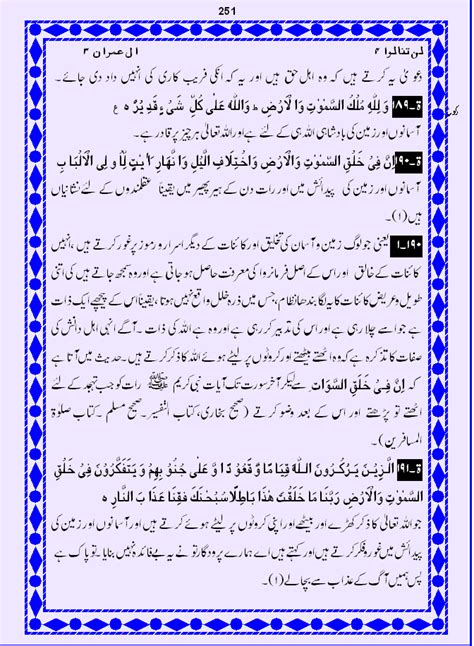 251
لن تنالوا ٤ ال عمران ٣
دعویٰ یہ کرتے ہیں کہ وہ اہل حق ہیں اور یہ کہ انکی فریب کاری کی انہیں داد دی جائے۔
ۃ۔۱۸۹ وَلِلّٰهِ مُلْكُ السَّمٰوٰتِ وَالْاَرْضِ ط وَاللّٰهُ عَلٰى كُلِّ شَىْءٍ قَدِيْرٌ ه ع
آسمانوں اور زمین کی بادشاہی اللہ ہی کے لئے ہے اور اللہ تعالیٰ ہر چیز پر قادر ہے۔
ۃ۔۱۹۰ اِنَّ فِىْ خَلْقِ السَّمٰوٰتِ وَالْاَرْضِ وَاخْتِلَافِ الَّيْلِ وَا لنَّهَارِ لَاٰ يٰتٍ لِّاُ و لِى الْاَلْبَا بِ
آسمانوں اور زمین کی پیدائش میں اور رات دن کے ہیر پھیر میں یقیناً عقلمندوں کے لئے نشانیاں
ہیں(۱)۔
۱۹۰۔۱ یعنی جو لوگ زمین و آسمان کی تخلیق اور کائنات کے دیگر اسرار و رموز پر غور کرتے ہیں ،انہیں
کائنات کے خالق اور اس کے اصل فرمانروا کی معرفت حاصل ہو جاتی ہے اور وہ سمجھ جاتے ہیں کی اتنی
طویل و عریض کائنات کا یہ لگا بندھا نظام،جس میں ذرہ خلل واقع نہیں ہوتا،یقیناً اس کے پیچھے ایک ذات
ہے جو اسے چلا رہی ہے اور اس کی تدبیر کر رہی ہے اور وہ ہے اللہ کی ذات۔ آگے انہی اہل دانش کی
صفات کا تذکرہ ہے کہ وہ اٹھتے بیٹھتے اور کروٹوں پر لیٹے ہوئے اللہ کا ذکر کرتے ہیں۔حدیث میں آتا ہے
کہ اِنَّ فِىْ خَلْقِ السَّمٰوَات۔سے لیکر آخر سورت تک آیات نبی کریم ﷺ رات کو جب تہجد کے لئے
اٹھتے تو پڑھتے اور اس کے بعد وضو کرتے (صحیح بخاری، کتاب التفسیر۔صحیح مسلم ۔کتاب صلوٰۃ
المسافرین)۔
ۃ۔۱۹۱ الَّذِيْنَ يَذْكُرُوْنَ اللّٰهَ قِيَا مًا وَّ قُعُوْ دًا وَّ عَلٰى جُنُوْ بِهِمْ وَ يَتَفَكَّرُوْنَ فِىْ خَلْقِ
السَّمٰوٰتِ وَالْاَرْضِ رَبَّنَا مَا خَلَقْتَ هٰذَا بَاطِلًا سُبْحٰنَكَ فَقِنَا عَذَا بَ النَّارِ ه
جو اللہ تعالیٰ کا ذکر کھڑے اور بیٹھے اور اپنی کروٹوں پر لیٹے ہوئے کرتے ہیں اور آسمانوں اور زمین کی
پیدائش میں غور و فکر کرتے ہیں اور کہتے ہیں اے ہمارے پروردگار تو نے یہ بے فائدہ نہیں بنایا۔تو پاک ہے
پس ہمیں آگ کے عذاب سے بچا لے(۱)۔